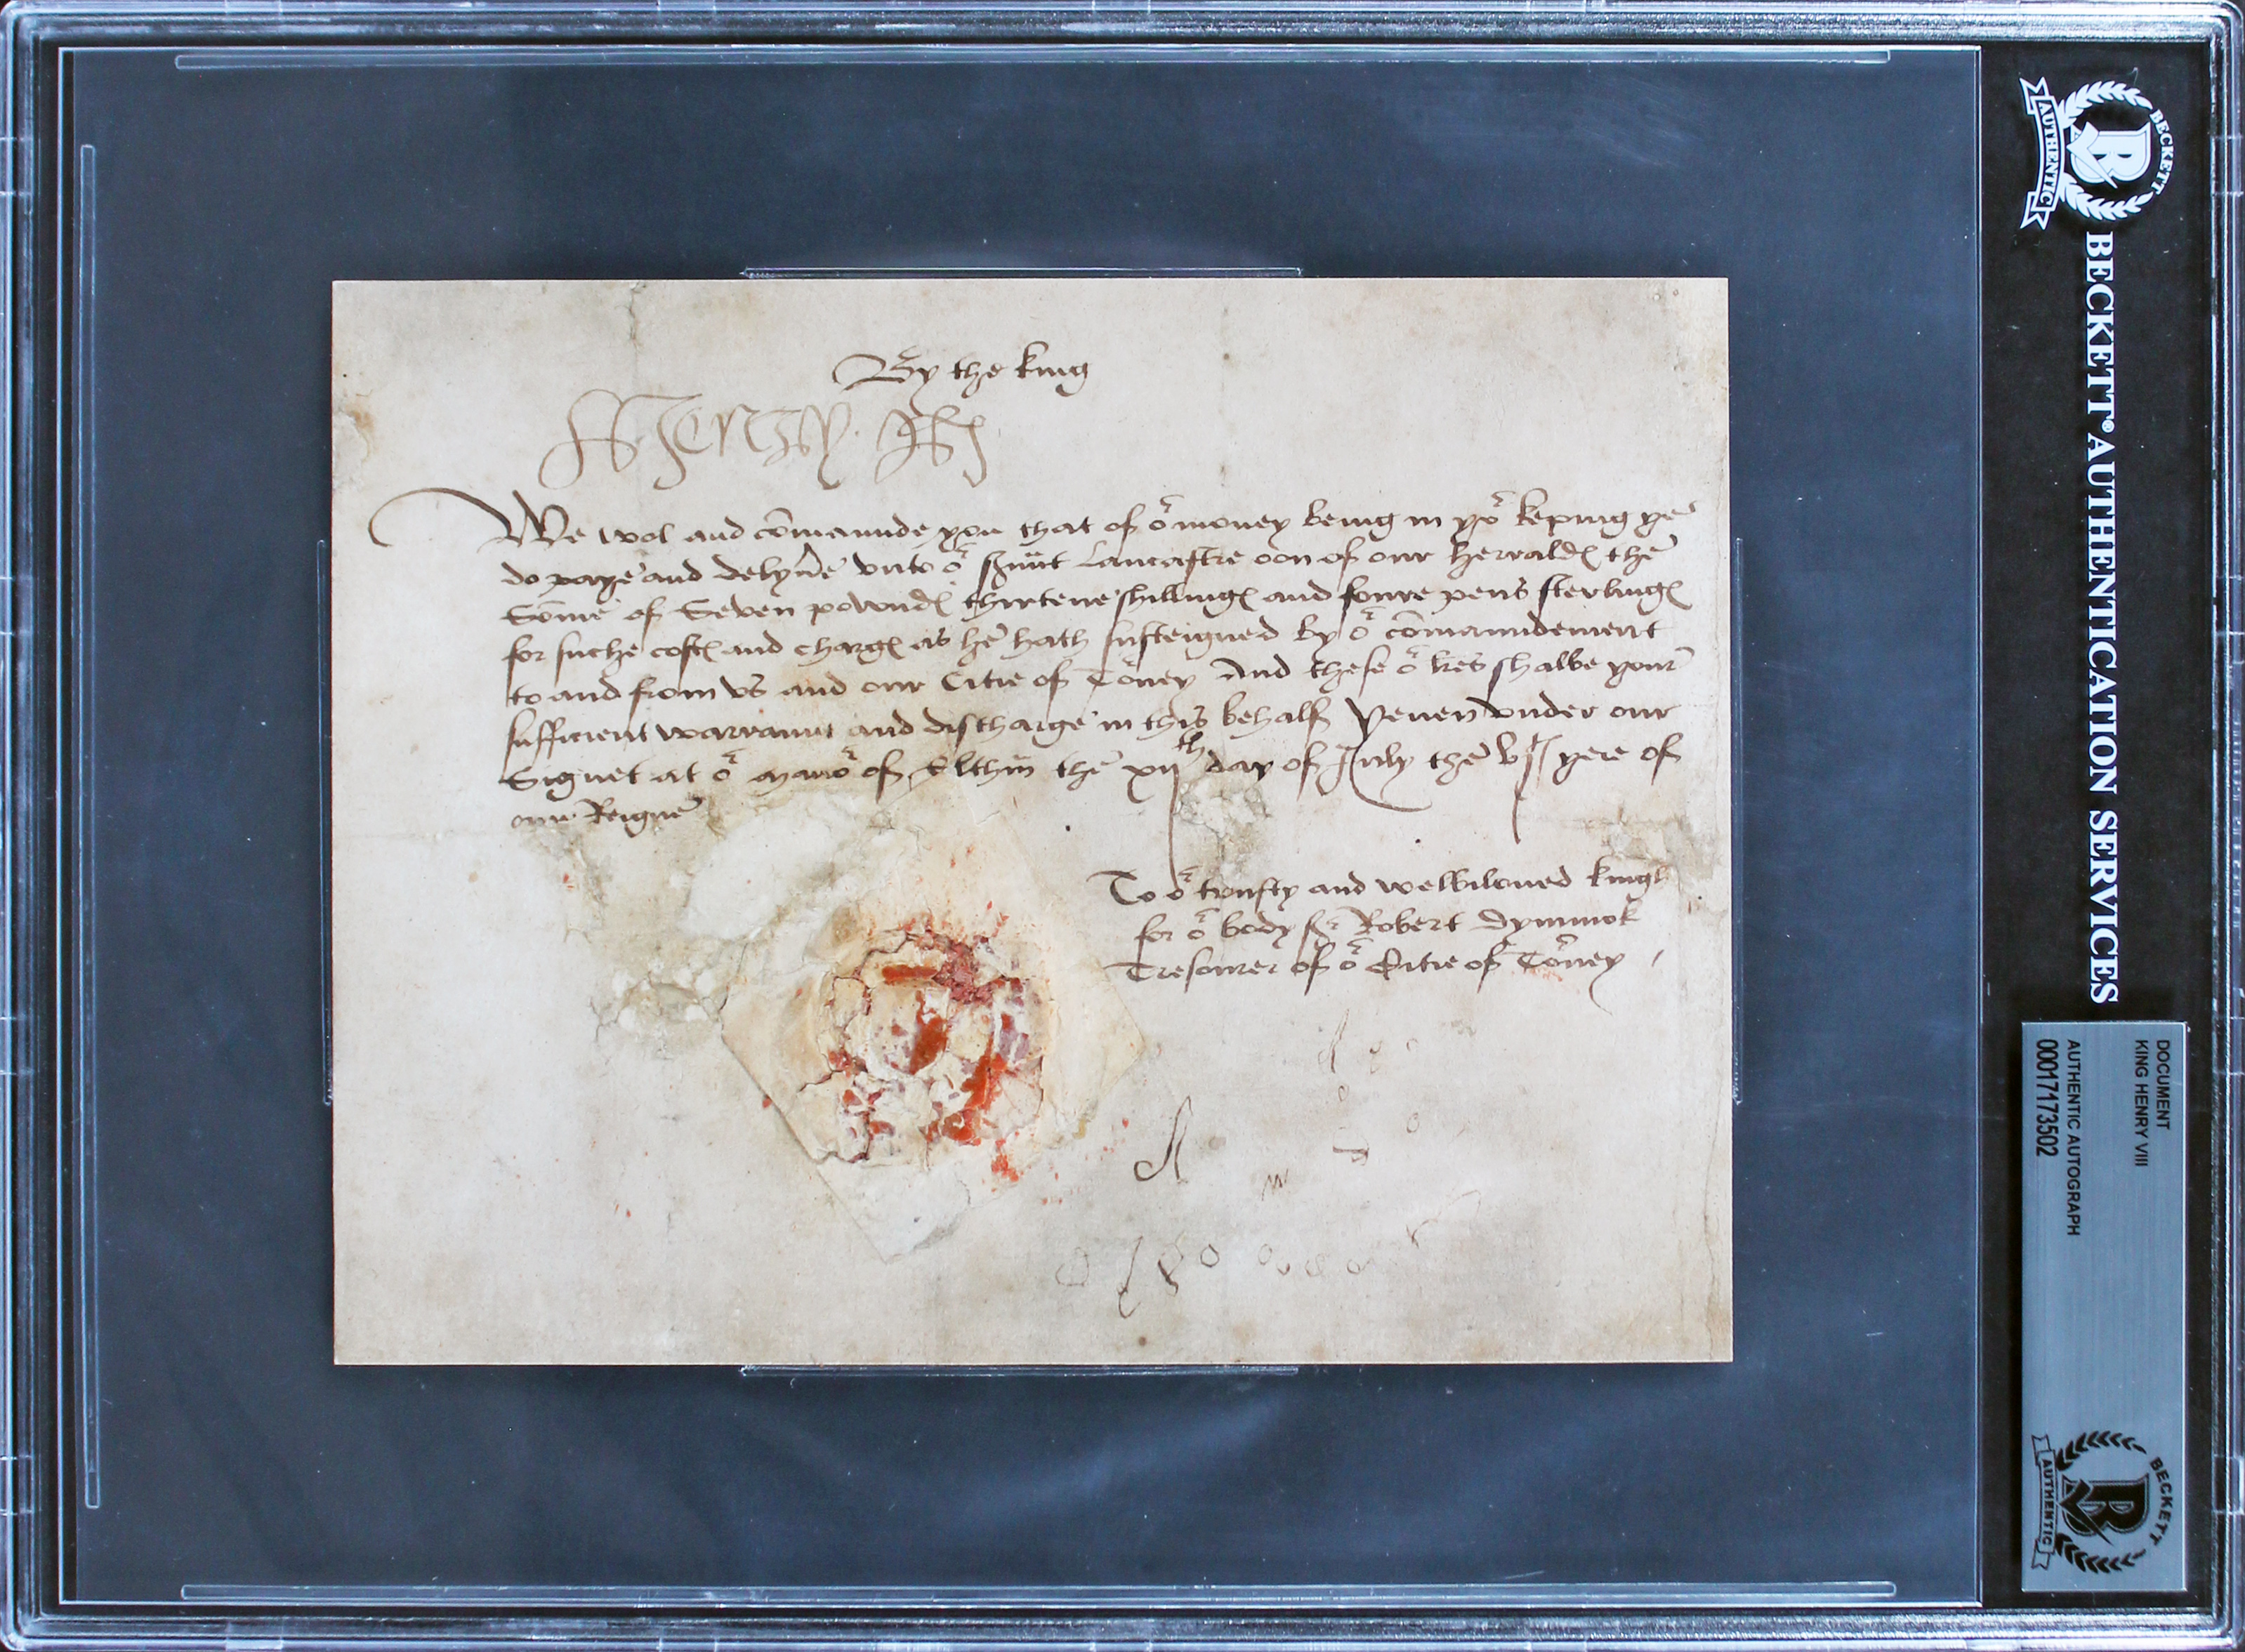 By the king
Henry R
We wol and com̄aunde you that of oʳ money being in yoʳ keping ye
do paye and delyu'e vnto oʳ s'uūt Lancastre oon of our herraldꝭ the
Som̄e of Seven powndꝭ thirtene shillingꝭ and foure pens sterlingꝭ
for suche costꝭ and chargꝭ as he hath susteigned by oʳ com̄aundement
to and from vs and our Citie of Toʳney And these oʳ l̄res shalbe your
sufficient warraunt and discharge in this behalf Yeuen vnder our
Signet at oʳ manoʳ of Elth̄m the xijth day of July the vjᵗ yere of
our Reigne
To oʳ trusty and welbiloued knigh
for oʳ body Sʳ Robert Dymmok
Tresourer of oʳ Citie of Toʳney
BECKETT
AUTHENTIC
BECKETT® AUTHENTICATION SERVICES
DOCUMENT
KING HENRY VIII
AUTHENTIC AUTOGRAPH
00017173502
BECKETT
AUTHENTIC